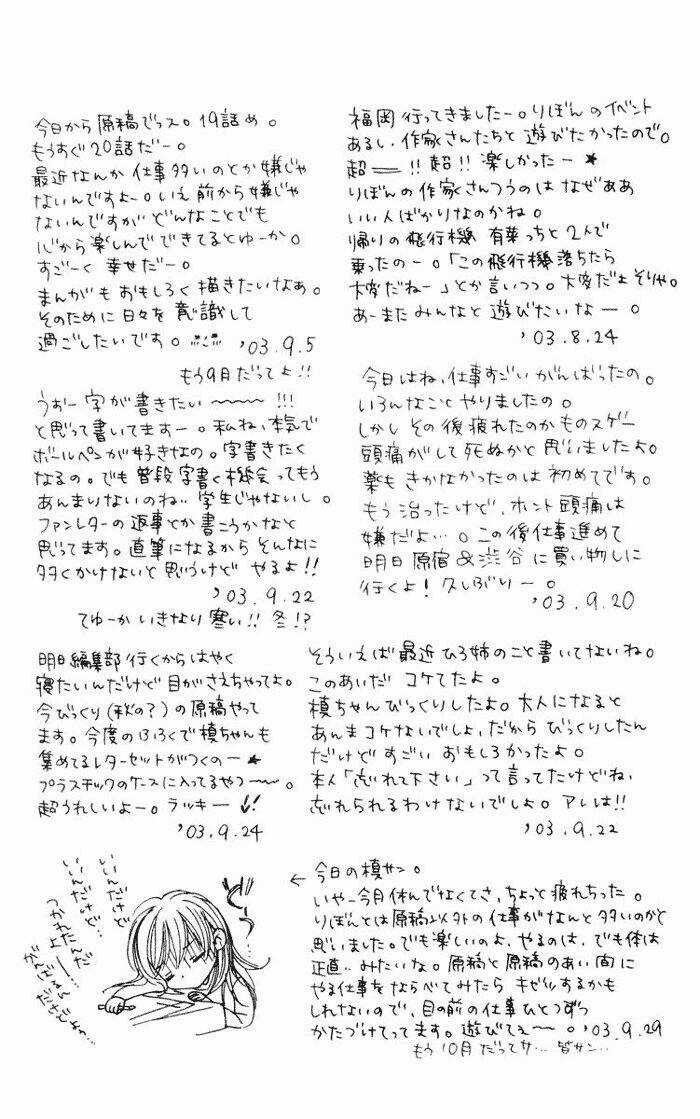 福岡行ってきましたー。りぼんのイベント
あるし、作家さんたちと遊びたかったので。
超――!!超!!楽しかったー★
りぼんの作家さんつうのはなぜああ
いい人ばかりなのかね。
帰りの飛行機 有葉っちと2人で
乗ったのー。「この飛行機落ちたら
大変だねー」とか言いつつ。大変だよそりゃ。
あーまたみんなと遊びたいなー。
'03.8.24
今日から原稿でっス。19話め。
もうすぐ20話だー。
最近なんか仕事多いのとか嫌じゃ
ないんですよー。いえ前から嫌じゃ
ないんですがどんなことでも
心から楽しんでできてるとゆーか。
すごーく幸せだー。
まんがもおもしろく描きたいなあ。
そのために日々を意識して
過ごしたいです。 '03.9.5
もう9月だってよ!!
今日はね、仕事すごいがんばったの。
いろんなことやりましたの。
しかしその後疲れたのかものスゲー
頭痛がして死ぬかと思いましたよ。
薬もきかなかったのは初めてです。
もう治ったけど、ホント頭痛は
嫌だよ…。この後仕事進めて
明日原宿&渋谷に買い物しに
行くよ!久しぶりー。
'03.9.20
うおー字が書きたい～～～!!!
と思って書いてますー。私ね、本気で
ボールペンが好きなの。字書きたく
なるの。でも普段字書く機会ってもう
あんまりないのね…学生じゃないし。
ファンレターの返事とか書こうかなと
思ってます。直筆になるからそんなに
多くかけないと思うけどやるよ!!
'03.9.22
てゆーかいきなり寒い!!冬!?
そういえば最近ひろ姉のこと書いてないね。
このあいだコケてたよ。
槙ちゃんびっくりしたよ。大人になると
あんまコケないでしょ、だからびっくりしたん
だけどすごいおもしろかったよ。
本人「忘れて下さい」って言ってたけどね、
忘れられるわけないでしょ。アレは!!
'03.9.22
明日編集部行くからはやく
寝たいんだけど目がさえちゃってよ。
今びっくり(秋の?)の原稿やって
ます。今度のふろくで槙ちゃんも
集めてるレターセットがつくのー★
プラスチックのケースに入ってるやつ～～。
超うれしいよー。ラッキー
'03.9.24
←今日の槙サン。
いやー今月休んでなくてさ、ちょっと疲れちった。
りぼんとは原稿以外の仕事がなんと多いのかと
思いました。でも楽しいのよ、やるのは、でも体は
正直…みたいな。原稿と原稿のあい間に
やる仕事をならべてみたらキゼツするかも
しれないので、目の前の仕事ひとつずつ
かたづけてってます。遊びてえ～～。'03.9.29
もう10月だってサ…皆サン…
いいんだけど
いいんだけど…
つかれたんだ
よー…
がんばるん
だけどね…